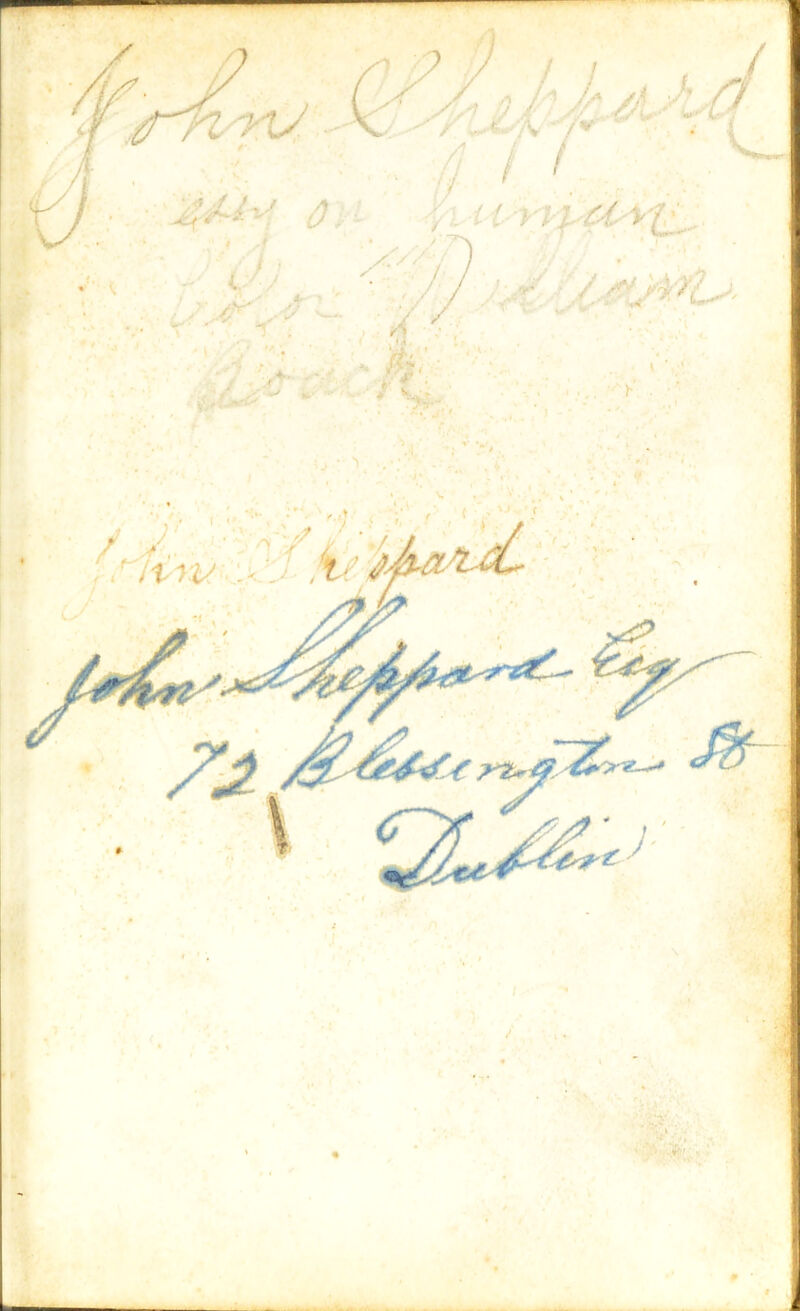 John Sheppard
essy on human
Color "William
Roack
John Sheppard
John Sheppard Esq
72 Blessengton St
Dublin